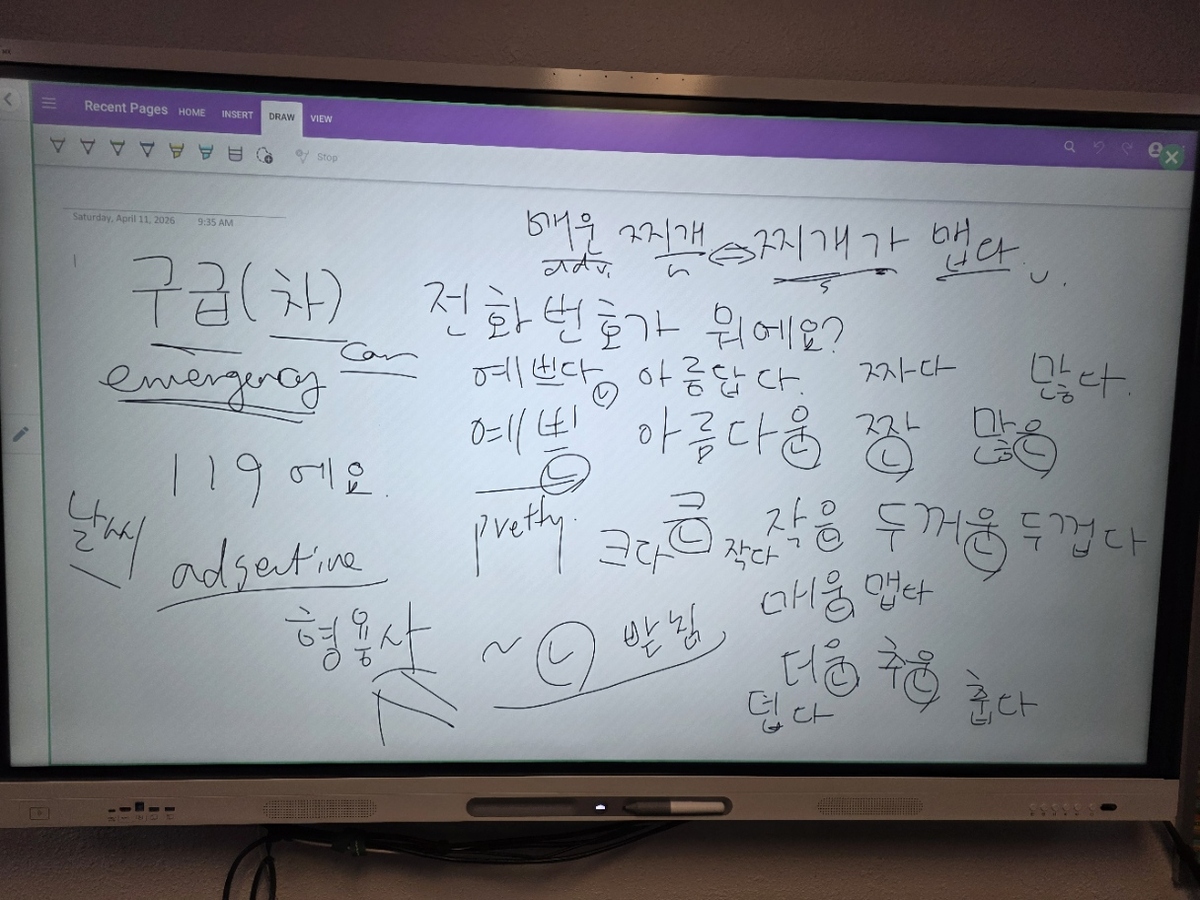 Recent Pages HOME INSERT DRAW VIEW
Stop
Saturday, April 11, 2026 9:35 AM
매운 찌개 ⇔ 찌개가 맵다.
adv. n s
구급(차) 전화번호가 뭐에요?
emergency car
예쁘다 아름답다. 짜다 많다.
예쁜 아름다운 짠 많은
119에요.
pretty.
크다 큰 작다 작은 두꺼운 두껍다
날씨
adjective
매운 맵다
형용사 ~ㄴ 받침
더운 추운
덥다 춥다